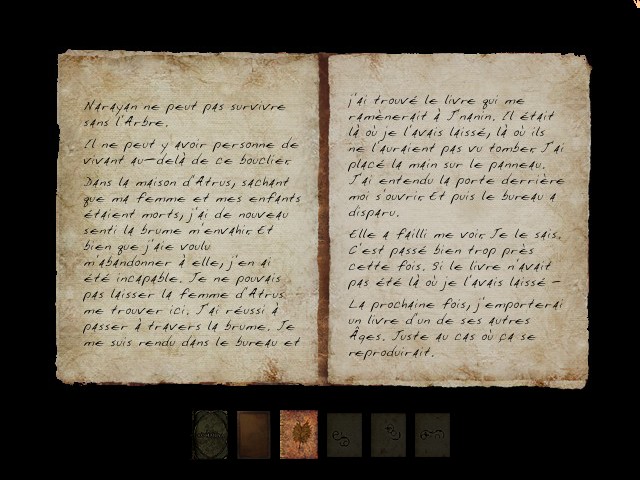 Narayan ne peut pas survivre
sans l'Arbre.
Il ne peut y avoir personne de
vivant au-delà de ce bouclier.
Dans la maison d'Atrus, sachant
que ma femme et mes enfants
étaient morts, j'ai de nouveau
senti la brume m'envahir. Et
bien que j'aie voulu
m'abandonner à elle, j'en ai
été incapable. Je ne pouvais
pas laisser la femme d'Atrus
me trouver ici. J'ai réussi à
passer à travers la brume. Je
me suis rendu dans le bureau et
j'ai trouvé le livre qui me
ramènerait à J'nanin. Il était
là où je l'avais laissé, là où ils
ne l'auraient pas vu tomber. J'ai
placé la main sur le panneau.
J'ai entendu la porte derrière
moi s'ouvrir. Et puis le bureau a
disparu.
Elle a failli me voir. Je le sais.
C'est passé bien trop près
cette fois. Si le livre n'avait
pas été là où je l'avais laissé —
La prochaine fois, j'emporterai
un livre d'un de ses autres
Âges. Juste au cas où ça se
reproduirait.